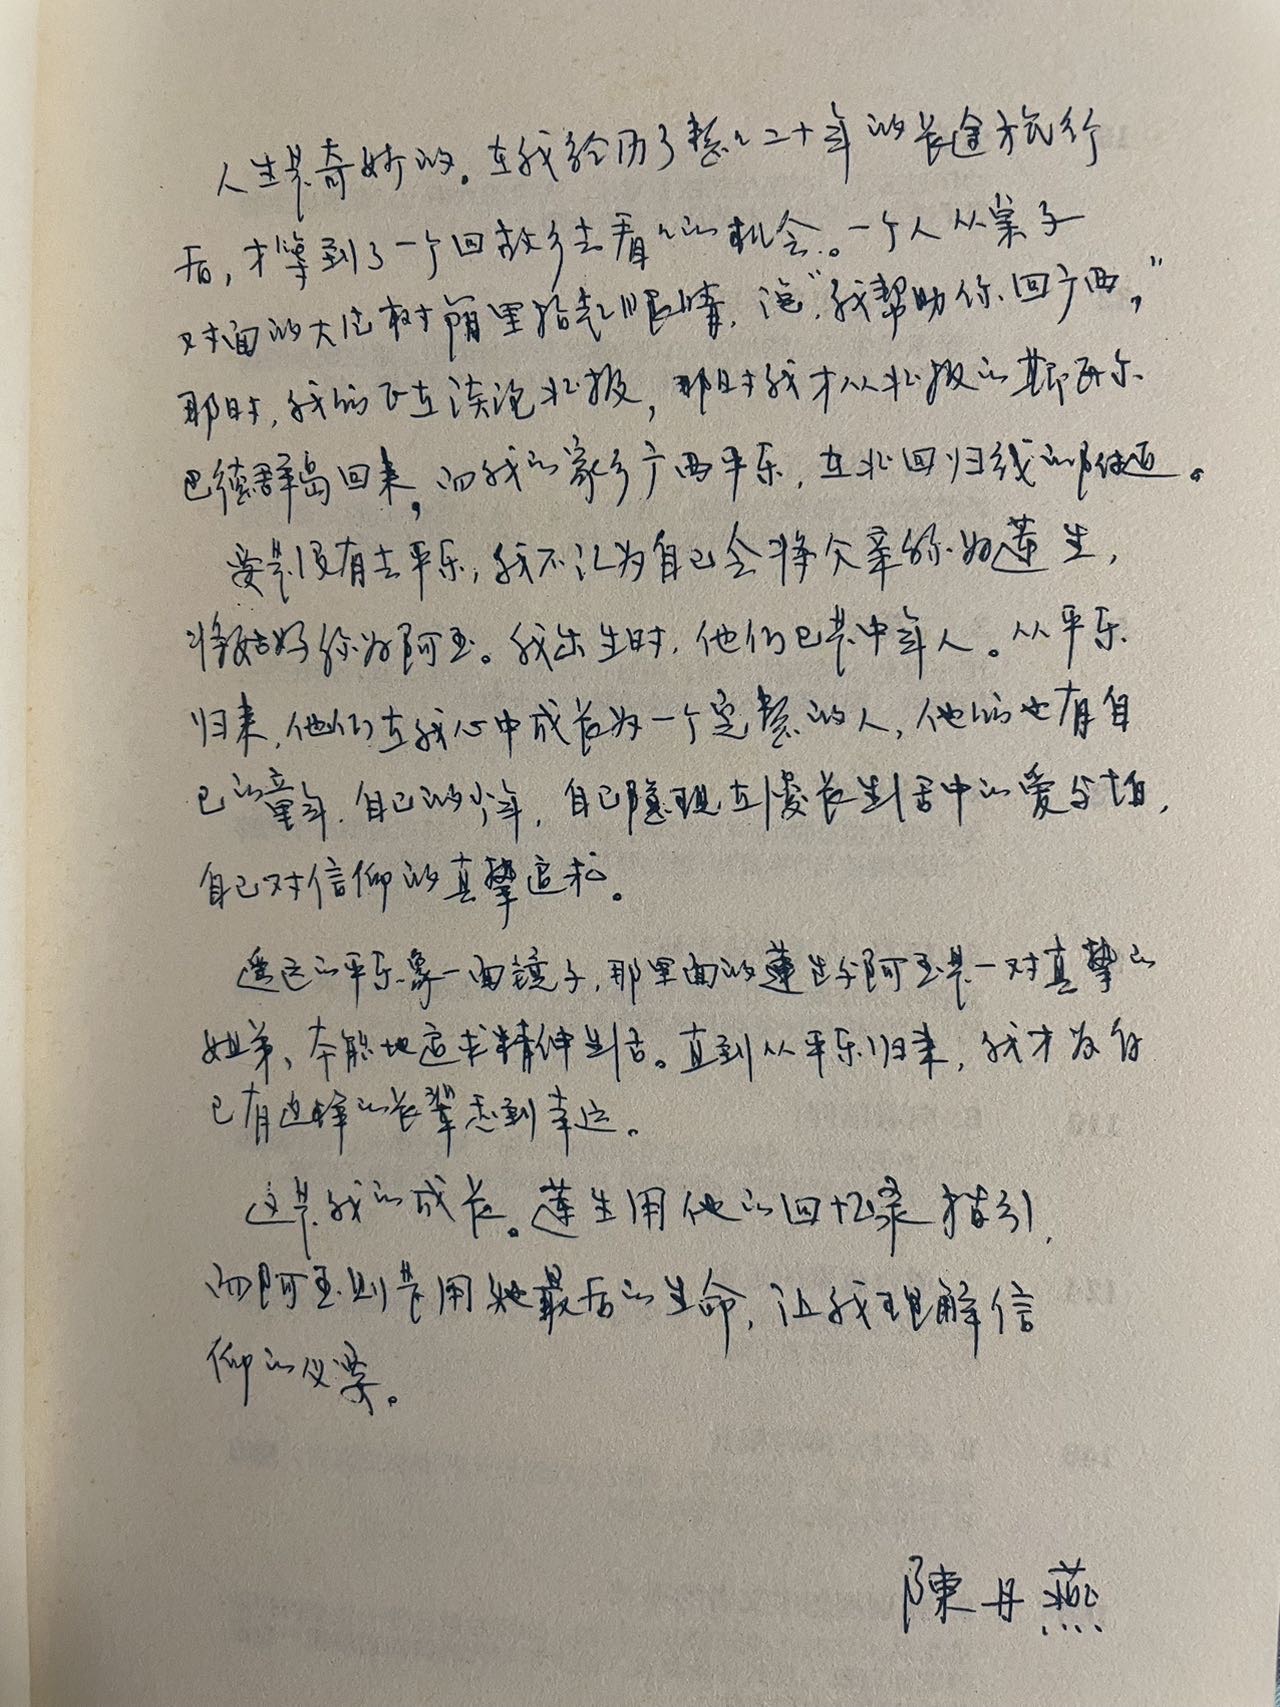 人生是奇妙的。在我经历了整整二十年的长途旅行
后，才等到了一个回故乡去看看的机会。一个人从桌子
对面的大片树荫里抬起眼睛，说“我帮助你回广西，”
那时，我们正在谈论北极，那时我才从北极的斯瓦尔
巴德群岛回来，而我的家乡广西平乐，在北回归线的附近。
要是没有去平乐，我不认为自己会将父亲称为莲生，
将姑妈称为阿玉。我出生时，他们已是中年人。从平乐
归来，他们在我心中成长为一个完整的人，他们也有自
己的童年，自己的少年，自己隐现在漫长生活中的爱与怕，
自己对信仰的真挚追求。
遥远的平乐象一面镜子，那里面的莲生与阿玉是一对真挚的
姐弟，本能地追求精神生活。直到从平乐归来，我才为自
己有这样的长辈感到幸运。
这是我的成长。莲生用他的回忆录指引，
而阿玉则是用她最后的生命，让我理解信
仰的必要。
陳丹燕